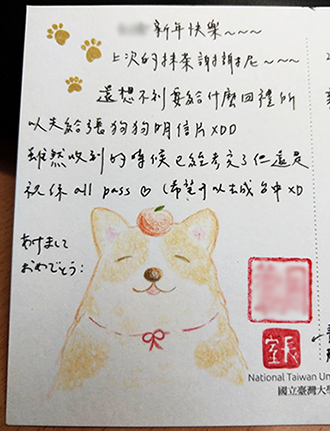 新年快樂~~~~
上次的抹茶謝謝尼~~~~
還想不到要給什麼回禮所
以先給張狗狗明信片XDD
雖然收到的時候已經考完了但還是
祝你all pass♡(希望可以去成台中XD
あけまして
おめでとう:
室長
National Taiwan Un
國立臺灣大學